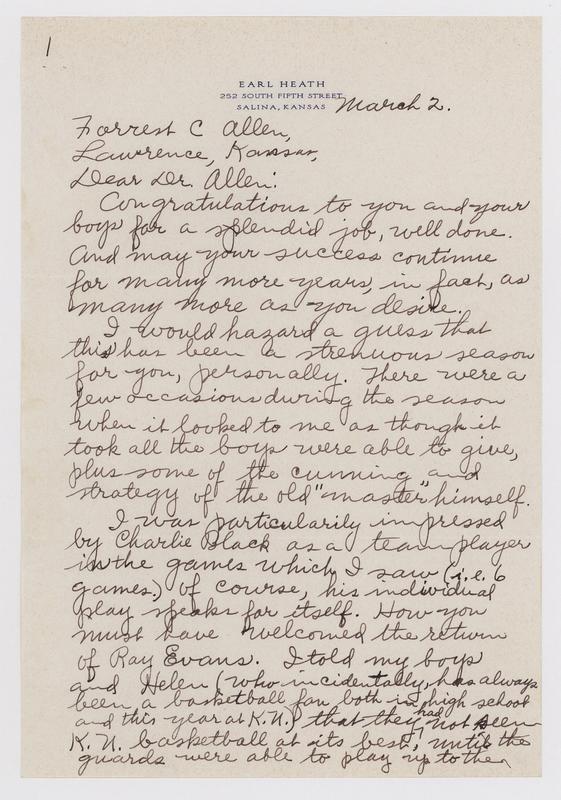 1
EARL HEATH
252 SOUTH FIFTH STREET
SALINA, KANSAS
March 2.
Forrest C Allen,
Lawrence, Kansas,
Dear Dr. Allen:
Congratulations to you and your
boys for a splendid job, well done.
And may your success continue
for many more years, in fact, as
many more as you desire.
I would hazard a guess that
this has been a strenuous season
for you, personally. There were a
few occasions during the season
when it looked to me as though it
took all the boys were able to give,
plus some of the cunning and
strategy of the old "master" himself.
I was particularily impressed
by Charlie Black as a team player
in the games which I saw (i.e. 6
games.) Of course, his individual
play speaks for itself. How you
must have welcomed the return
of Ray Evans. I told my boys
and Helen (who incidentally, has always
been a basketball fan both in high school
and this year at K.U.) that they had not seen
K.U. basketball at its best, until the
guards were able to play up to the